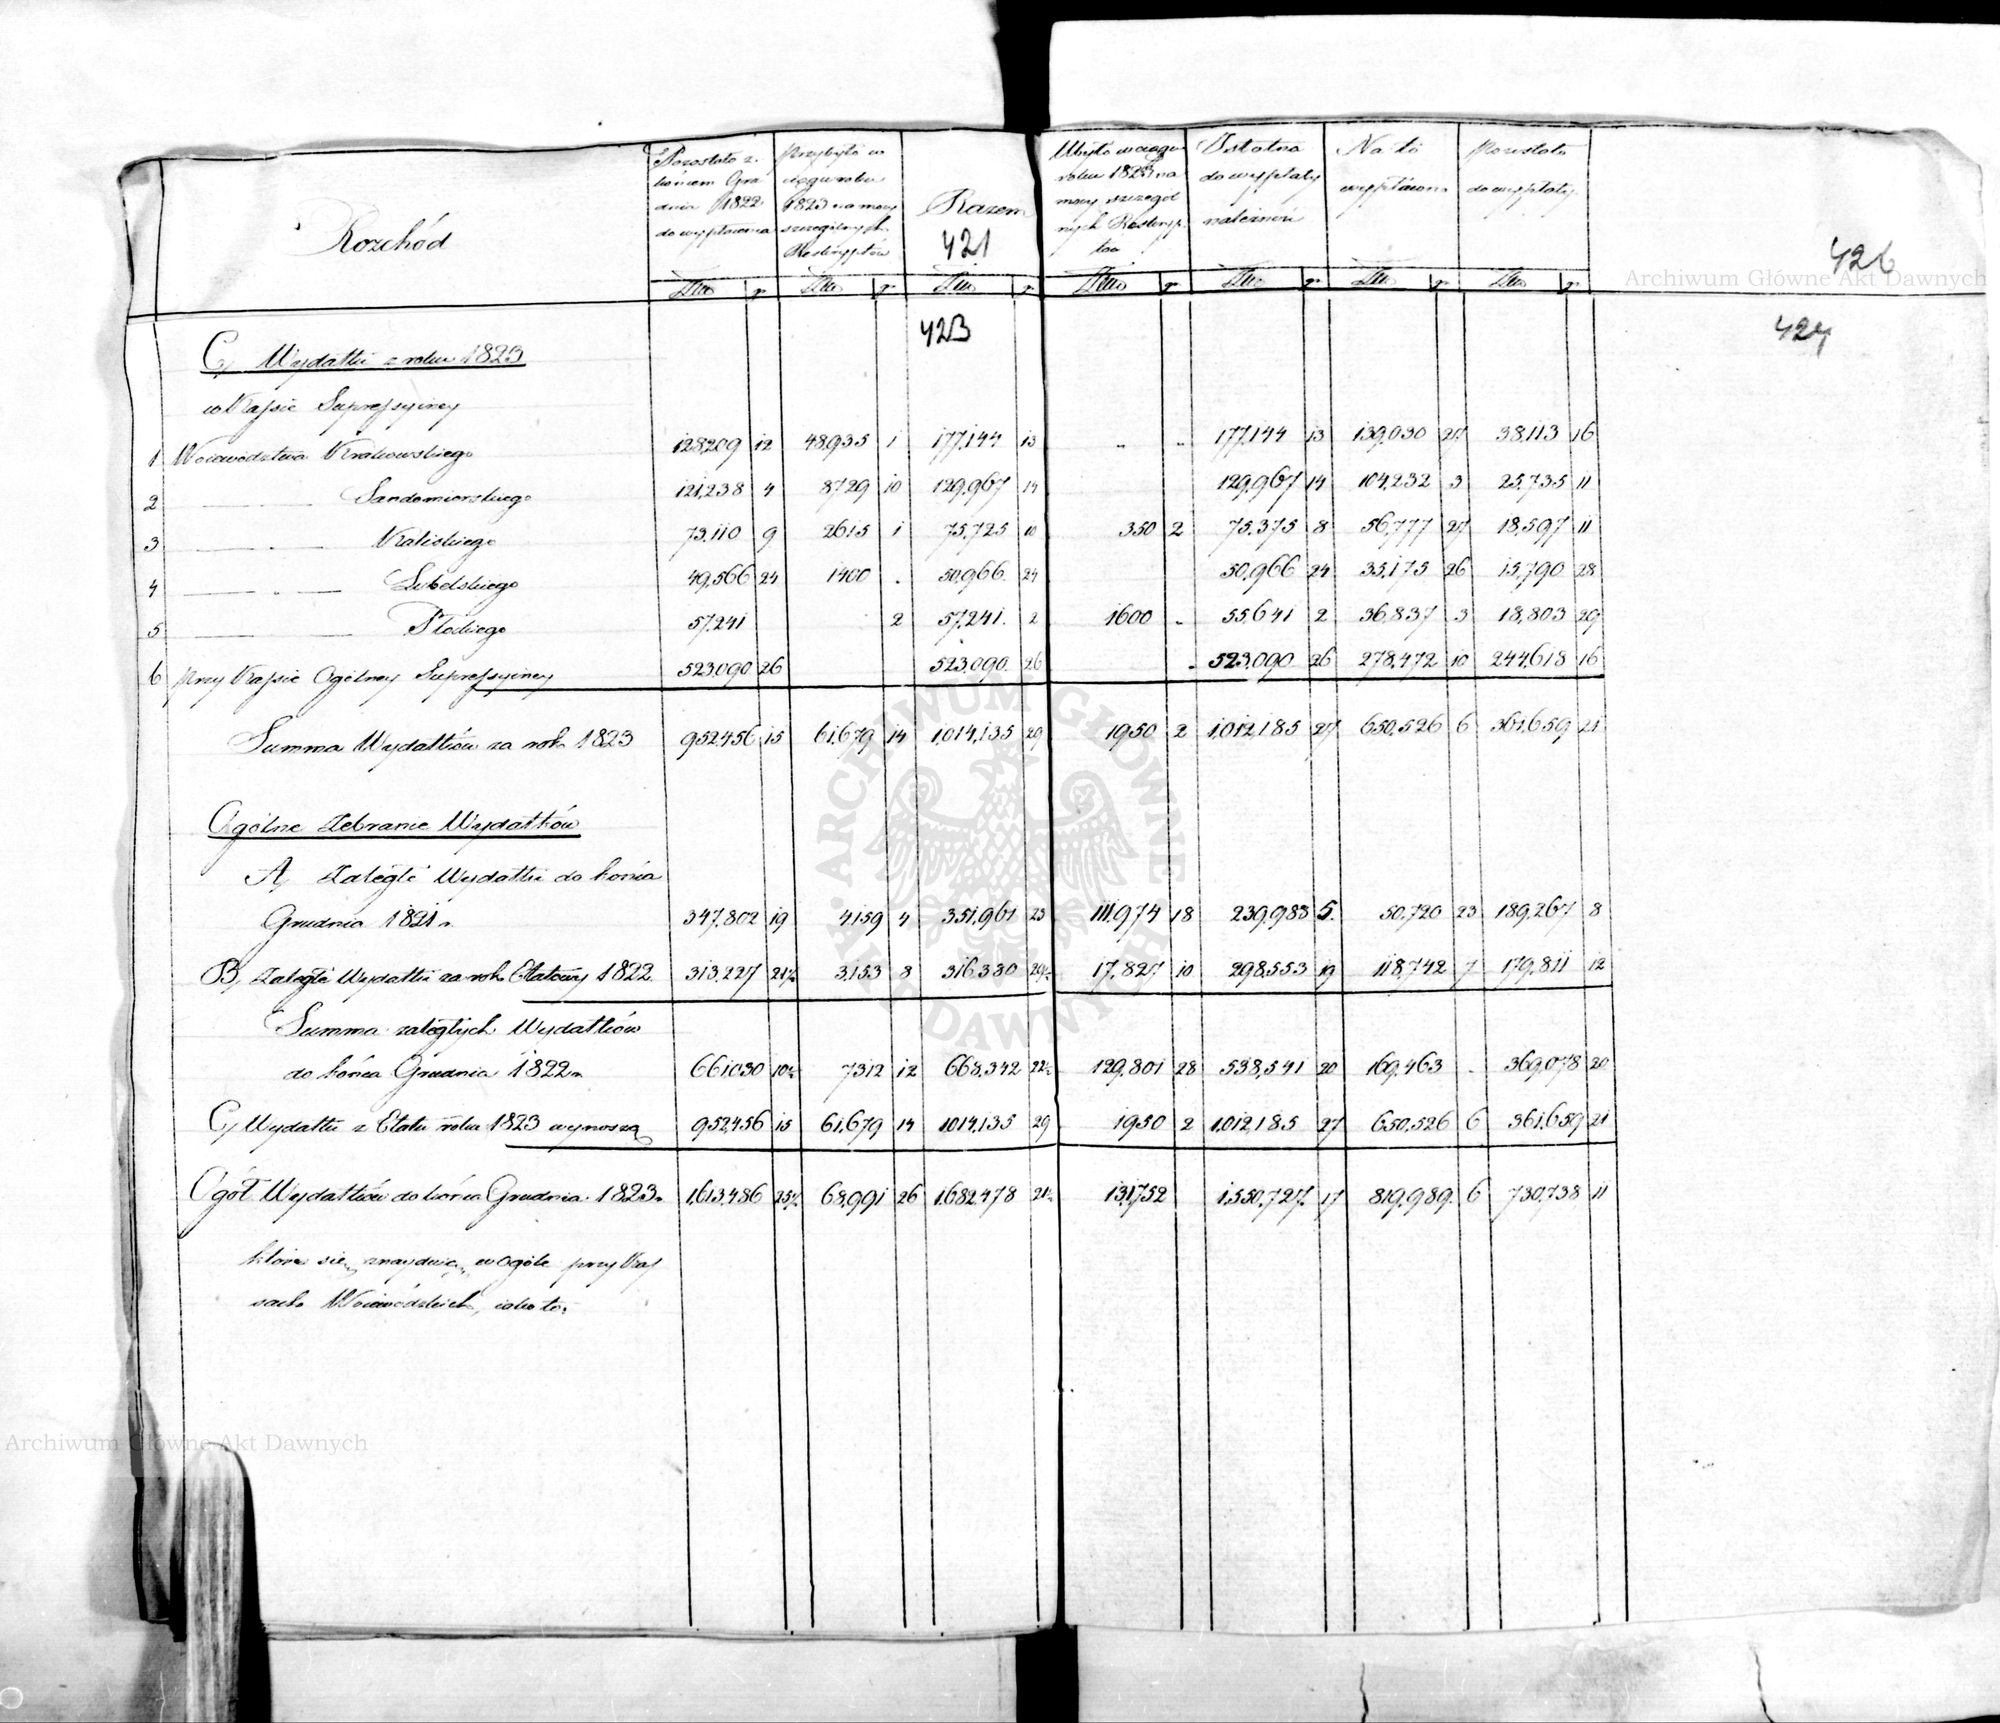 Rozchód
Pozostało z
końcem Gru
dnia 1822
do wypłacenia
Przybyło w
ciągu roku
1823 na mocy
szczególnych
Reskryptów
Razem
421
Ubyło w ciągu
roku 1823 na
mocy szczegól
nych Reskryp
tów
Istotna
do wypłaty
należność
Na to
wypłacono
Pozostało
do wypłaty
426
Złtt gr Złtt gr Złtt gr Złtt gr Złtt gr Złtt gr Złtt gr
423
424
C, Wydatki z roku 1823
w Kassie Suppressyiney
1 Woiewództwa Krakowskiego 128,209 12 48,935 1 177,144 13 " " 177,144 13 139,030 27 38,113 16
2 Sandomierskiego 121,238 4 8729 10 129,967 14 129,967 14 104,232 3 25,735 11
3 Kaliskiego 73,110 9 2615 1 75,725 10 350 2 75,375 8 56,777 27 18,597 11
4 Lubelskiego 49,566 24 1400 . 50,966 24 50,966 24 35,175 26 15,790 28
5 Płockiego 57,241 2 57,241 2 1600 - 55,641 2 36,837 3 18,803 29
6 przy Kassie Ogólney Suppressyiney 523,090 26 523,090 26 - 523,090 26 278,472 10 244,618 16
Summa Wydatków za rok 1823 952,456 15 61,679 14 1,014,135 29 1950 2 1,012,185 27 650,526 6 361,659 21
Ogólne Zebranie Wydatków
A, Zaległe Wydatki do końca
Grudnia 1821 r. 347,802 19 4159 4 351,961 23 111,974 18 239,983 5. 50,720 23 189,267 8
B, Zaległe Wydatki za rok Etatowy 1822 313,227 21½ 3153 8 316,380 29½ 17,827 10 298,553 19 118,742 7 179,811 12
Summa zaległych Wydatków
do końca Grudnia 1822 r. 661,030 10½ 7312 12 668,342 22½ 129,801 28 538,541 20 169,463 - 369,078 20
C, Wydatki z Etatu roku 1823 wynoszą 952,456 15 61,679 14 1014,135 29 1950 2 1,012,185 27 650,526 6 361,659 21
Ogół Wydatków do końca Grudnia 1823 r. 1,613,486 25½ 68,991 26 1,682,478 21½ 131,752 1,550,727 17 819,989 6 730,738 11
które się znayduią w ogóle przy Kas
sach Woiewódzkich, iako to:
Archiwum Główne Akt Dawnych
Archiwum Główne Akt Dawnych
ARCHIWUM GŁÓWNE AKT DAWNYCH